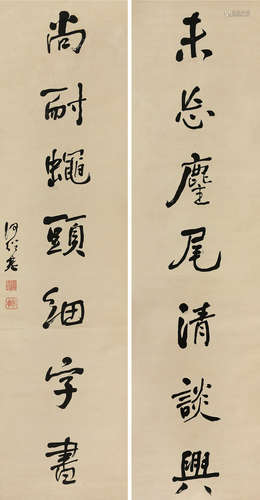 未忘麈尾清談興
尚耐蠅頭細字書
何紹基